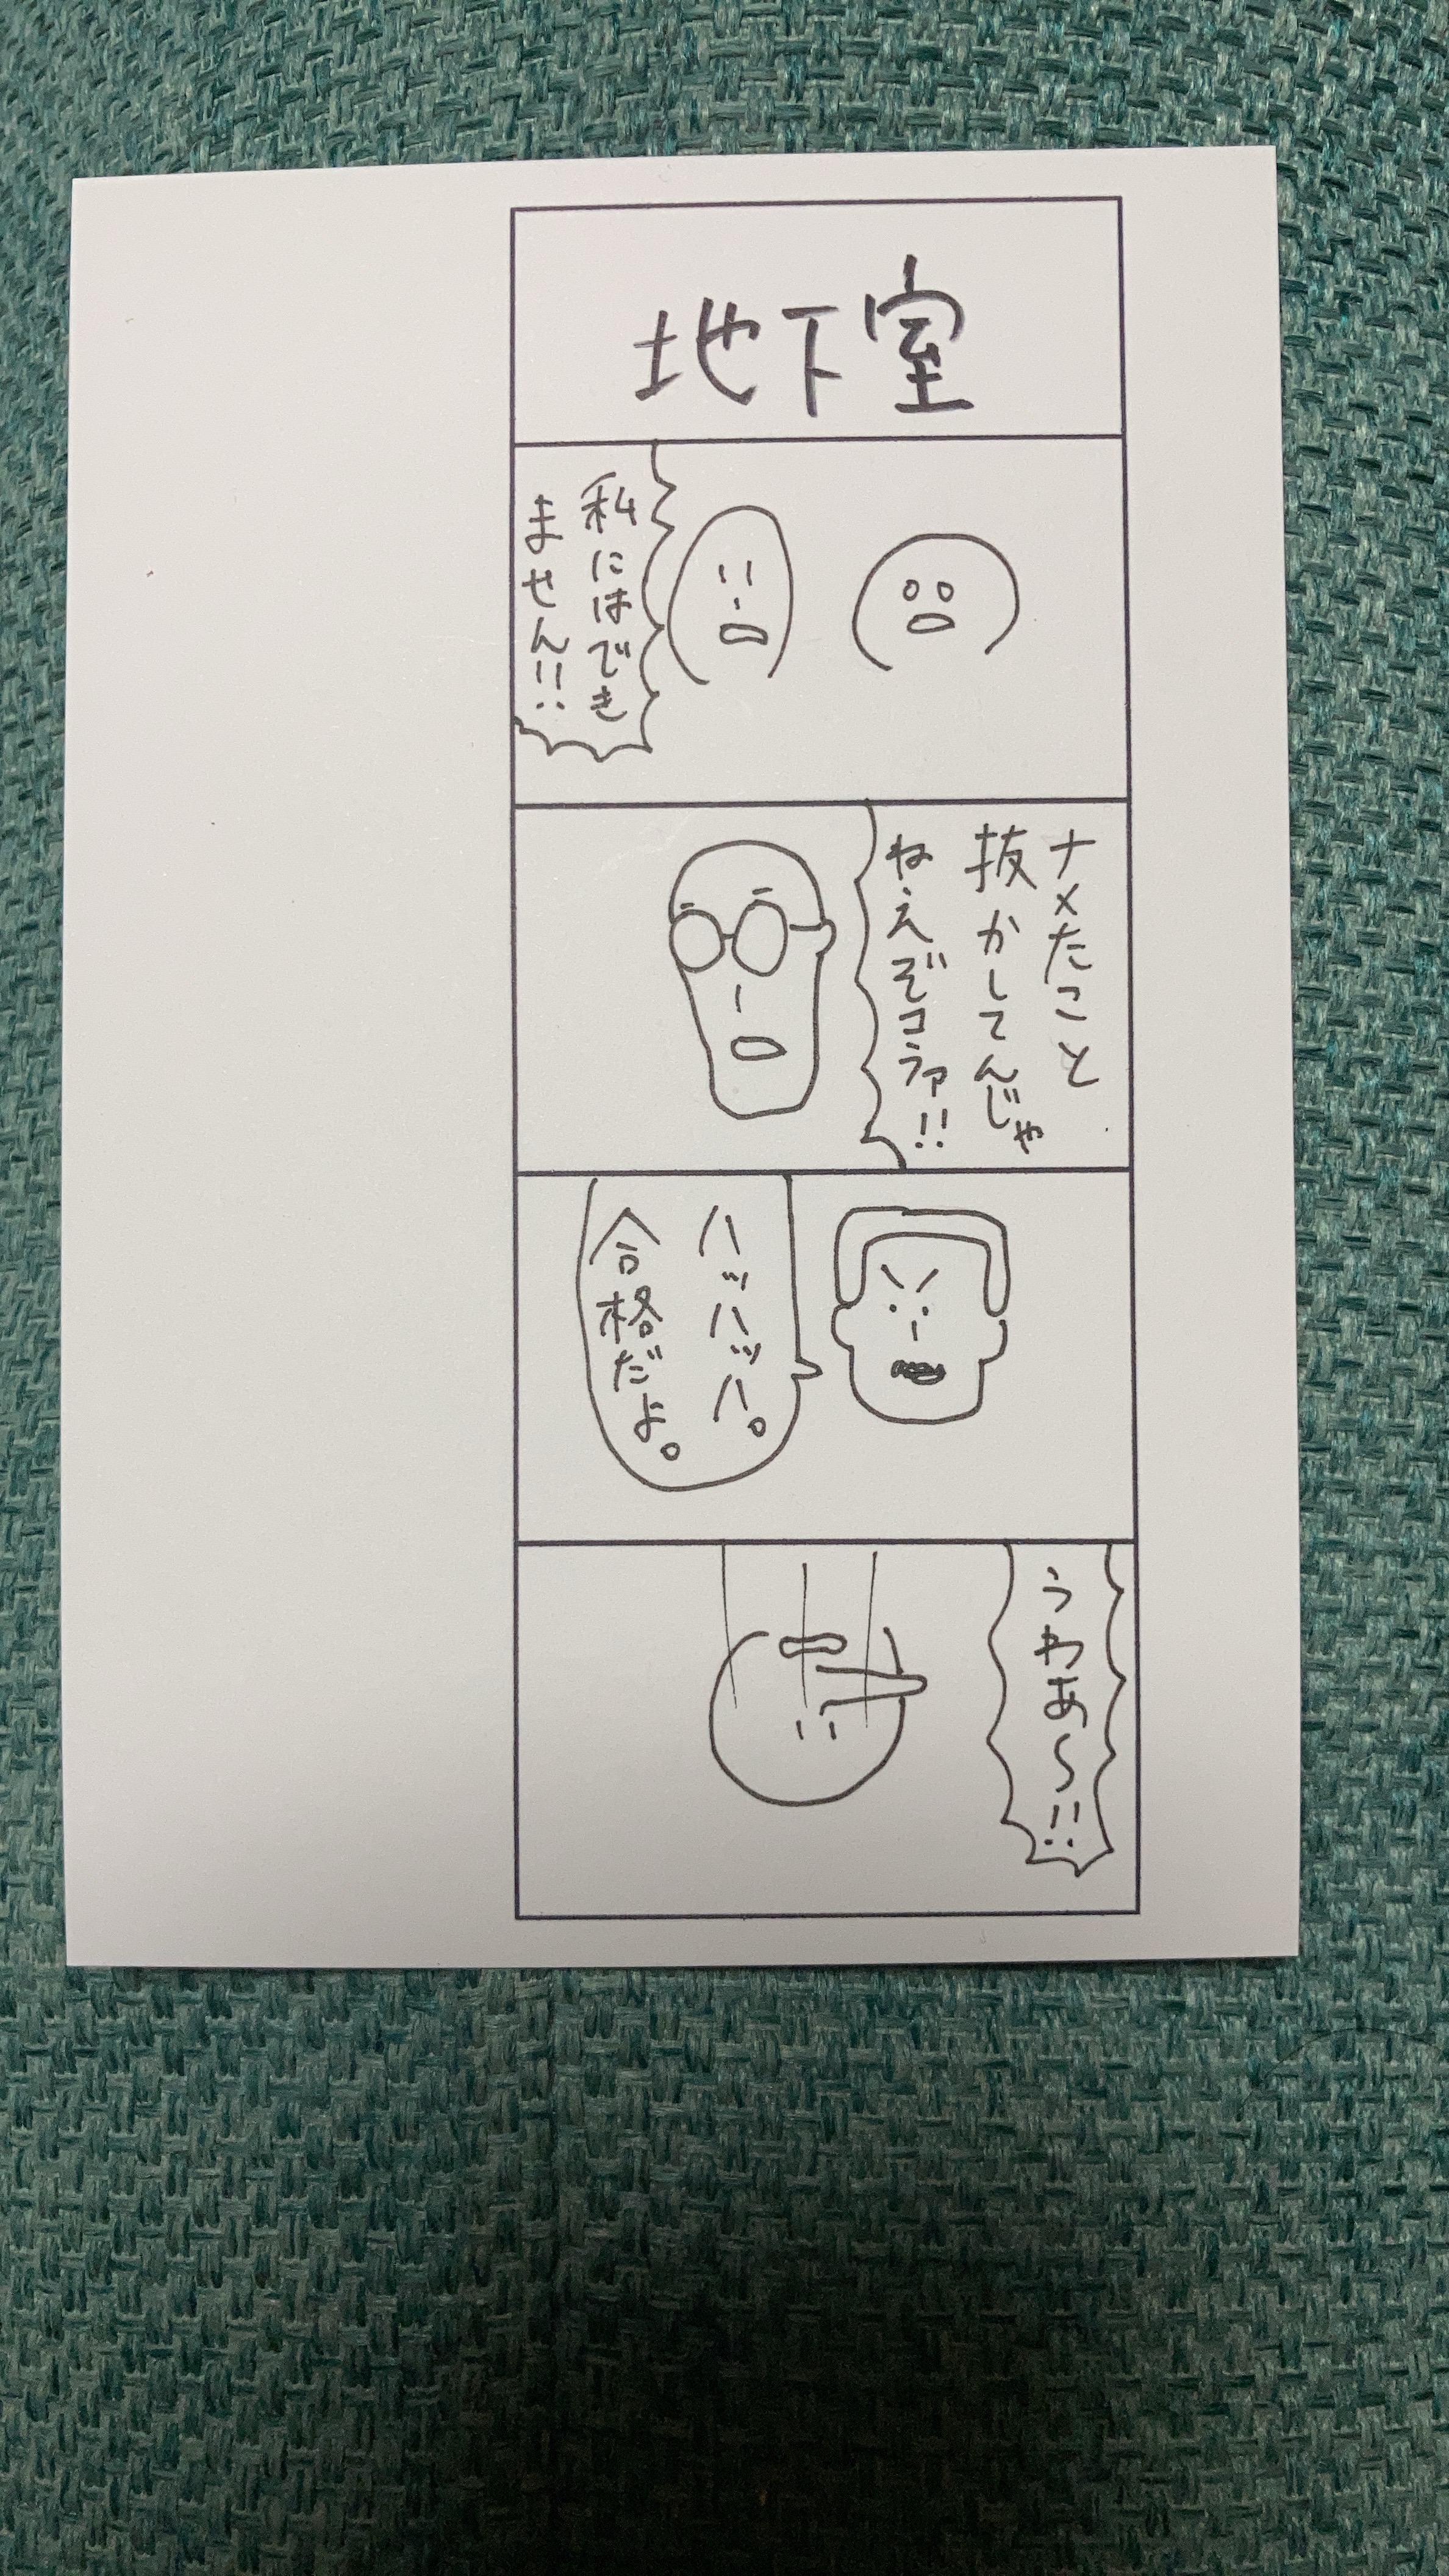 地下室
私にはでき
ません!!
ナメたこと
抜かしてんじゃ
ねえぞコラァ!!
ハッハッハ。
合格だよ。
うわあ〜!!